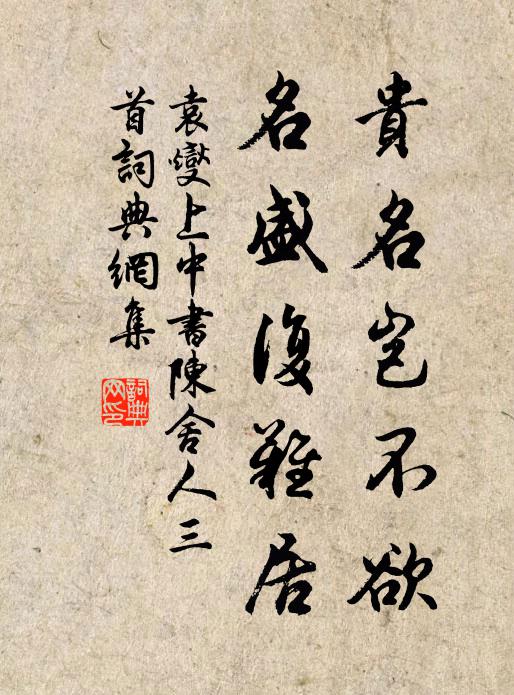 貴名岂不欲
名盛復難居
袁燮上中書陳舍人三
首詞典網集
詞典网印